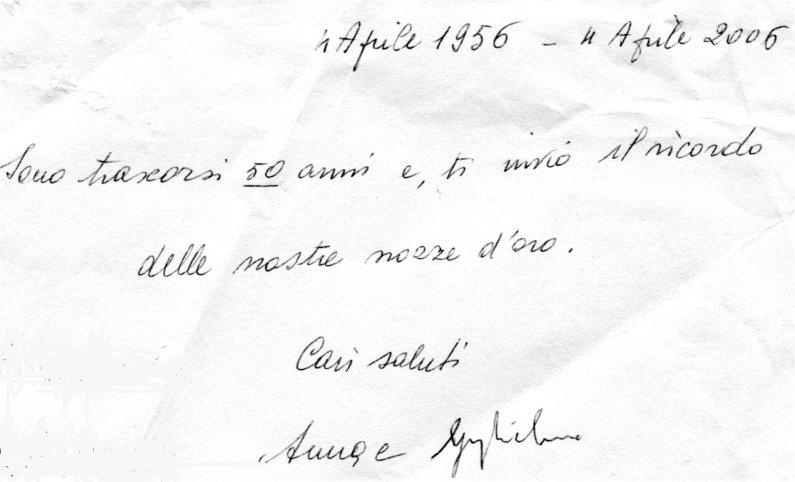 4 Aprile 1956 - 4 Aprile 2006
Sono trascorsi 50 anni e, ti invio il ricordo
delle nostre nozze d'oro.
Cari saluti
Anna e Guglielmo